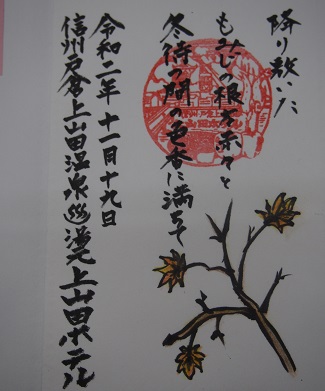 降り敷いた
もみじの根方赤々と
冬待つ間の色香に満ちて
令和二年十一月十九日
信州戸倉上山田温泉 上山田ホテル